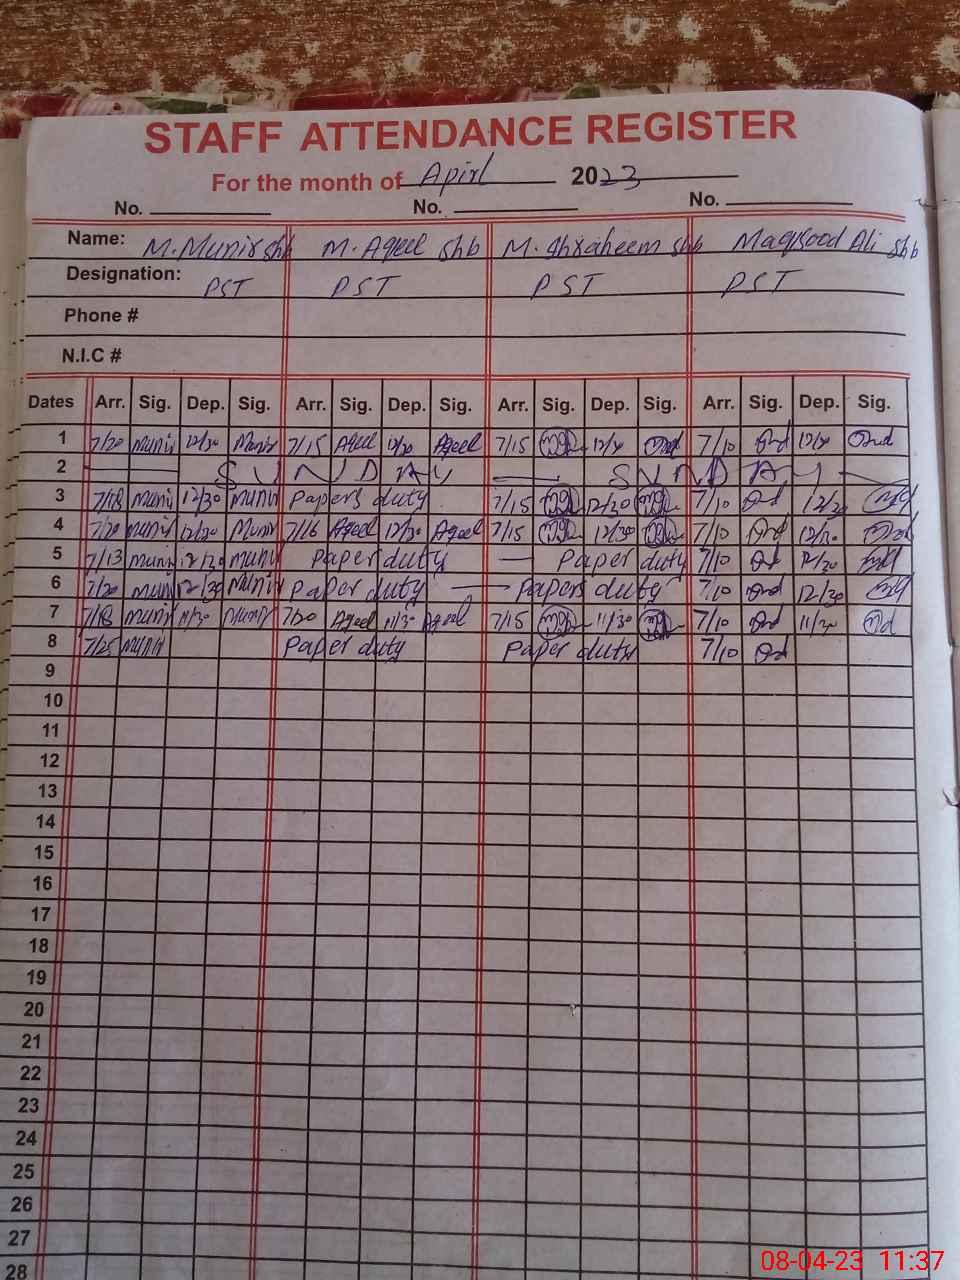 STAFF ATTENDANCE REGISTER
For the month of Apirl 2023
No. No. No.
Name: M. Munir shb M. Aqeel shb M. Ibraheem shb Maqsood Ali shb
Designation: PST PST PST PST
Phone #
N.I.C #
Dates Arr. Sig. Dep. Sig. Arr. Sig. Dep. Sig. Arr. Sig. Dep. Sig. Arr. Sig. Dep. Sig.
1 7/20 Munir 12/30 Munir 7/15 Aqeel 12/30 Aqeel 7/15 12/30 7/10 12/30
2 SUNDAY SUNDAY
3 7/18 Munir 12/30 Munir Papers duty 7/15 12/30 7/10 12/30
4 7/20 Munir 12/30 Munir 7/16 Aqeel 12/30 Aqeel 7/15 12/30 7/10 12/30
5 7/13 Munir 12/30 Munir Paper duty Paper duty 7/10 12/30
6 7/20 Munir 12/30 Munir Paper duty Papers duty 7/10 12/30
7 7/18 Munir 11/30 Munir 7/20 Aqeel 11/30 Aqeel 7/15 11/30 7/10 11/30
8 7/25 Munir Paper duty Paper duty 7/10
9
10
11
12
13
14
15
16
17
18
19
20
21
22
23
24
25
26
27
28
08-04-23 11:37